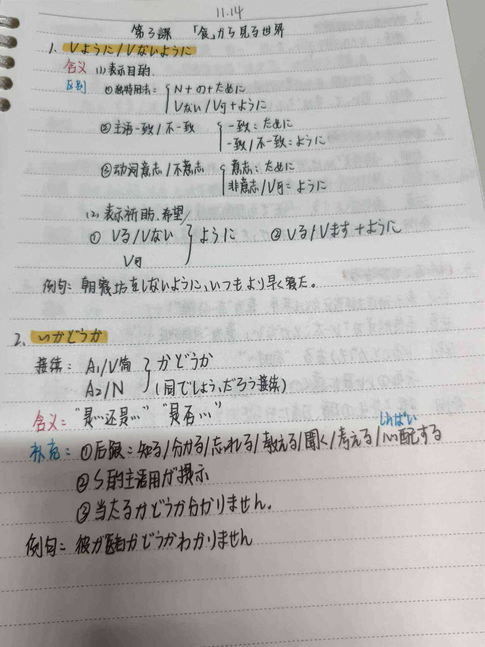 11.14
第3課 「食」から見る世界
1. Vように/Vないように
含义 (1)表示目的
区别 ①独特用法: { N+の+ために
Vない/V可+ように
②主语一致/不一致 { 一致: ために
一致/不一致: ように
③动词意志/不意志 { 意志: ために
非意志/V可: ように
(2) 表示祈助、希望/
① Vる/Vない } ように ② Vる/Vます+ように
V可
例句: 朝寝坊をしないように、いつもより早く寝た。
2. ...かどうか
接续: A₁/V简 } かどうか
A₂/N (同でしょう、だろう接续)
含义: "是...还是..." "是否..."
しんぱい
补充: ①后续: 知る/分かる/忘れる/教える/聞く/考える/心配する
②S的主语用が提示
③当たるかどうか分かりません。
例句: 彼が医者かどうかわかりません